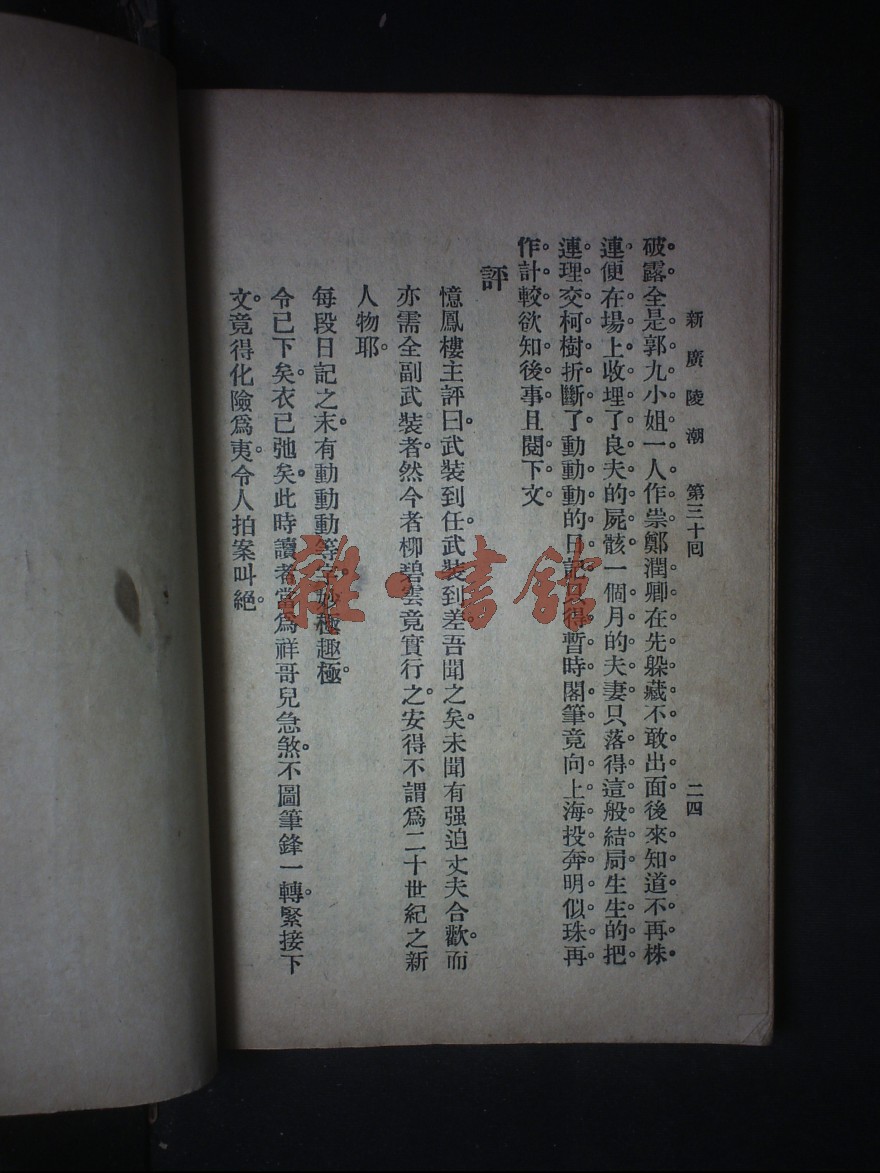 新廣陵潮 第三十回 二四
破露。全是郭九小姐一人作祟。鄭潤卿在先躲藏不敢出面。後來知道不再株
連。便在場上收埋了良夫的屍骸。一個月的夫妻。只落得這般結局。生生的把
連理交柯樹折斷了。動動動的日記。只得暫時閣筆。竟向上海投奔明似珠。再
作計較。欲知後事。且閱下文
評
憶鳳樓主評曰。武裝到任。武裝到差。吾聞之矣。未聞有强迫丈夫合歡。而
亦需全副武裝者。然今者柳碧雲竟實行之。安得不謂爲二十世紀之新
人物耶。
每段日記之末。有動動動等字。妙極趣極。
令已下矣。衣已弛矣。此時讀者當爲祥哥兒急煞。不圖筆鋒一轉。緊接下
文。竟得化險爲夷。令人拍案叫絕。
雜·書館